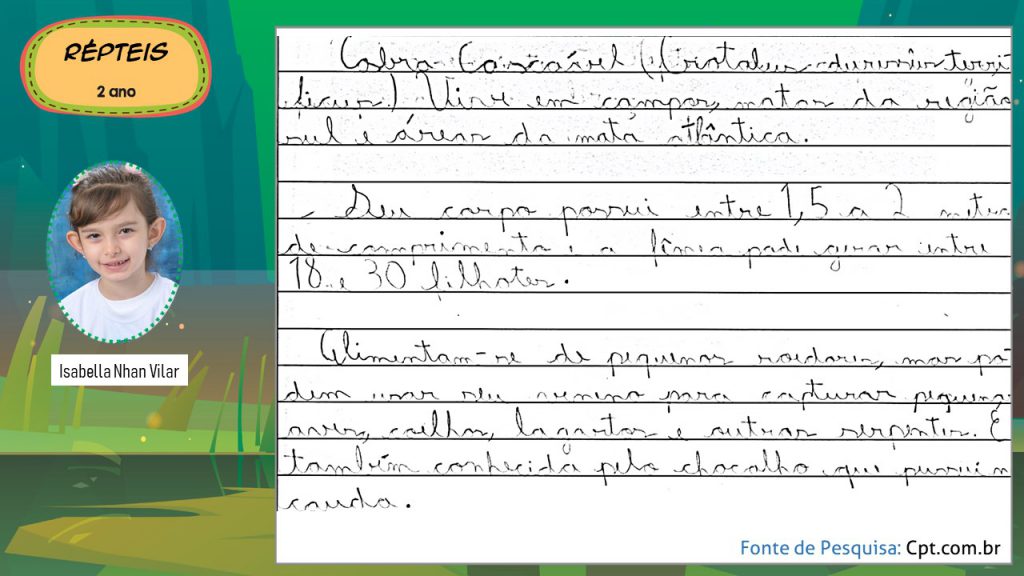 RÉPTEIS
2 ano
Isabella Nhan Vilar
Cobra Cascável (Crotalus durissus terri
ficus) Vive em campos, matas da região
sul e áreas da mata atlântica.
Seu corpo possui entre 1,5 a 2 metros
de comprimento e a fêmea pode gerar entre
18 e 30 filhotes.
Alimentam-se de pequenos roedores, mas po
dem usar seu veneno para capturar pequenas
aves, coelhos, lagartos e outras serpentes. É
também conhecida pelo chocalho que possui n
cauda.
Fonte de Pesquisa: Cpt.com.br